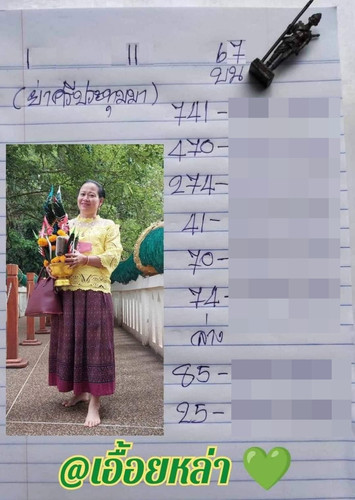 1 11 67
บน
(ย่าศรีปทุมมา)
741-
470-
274-
41-
70-
74-
ล่าง
85-
25-
@เอื้อยหล่า